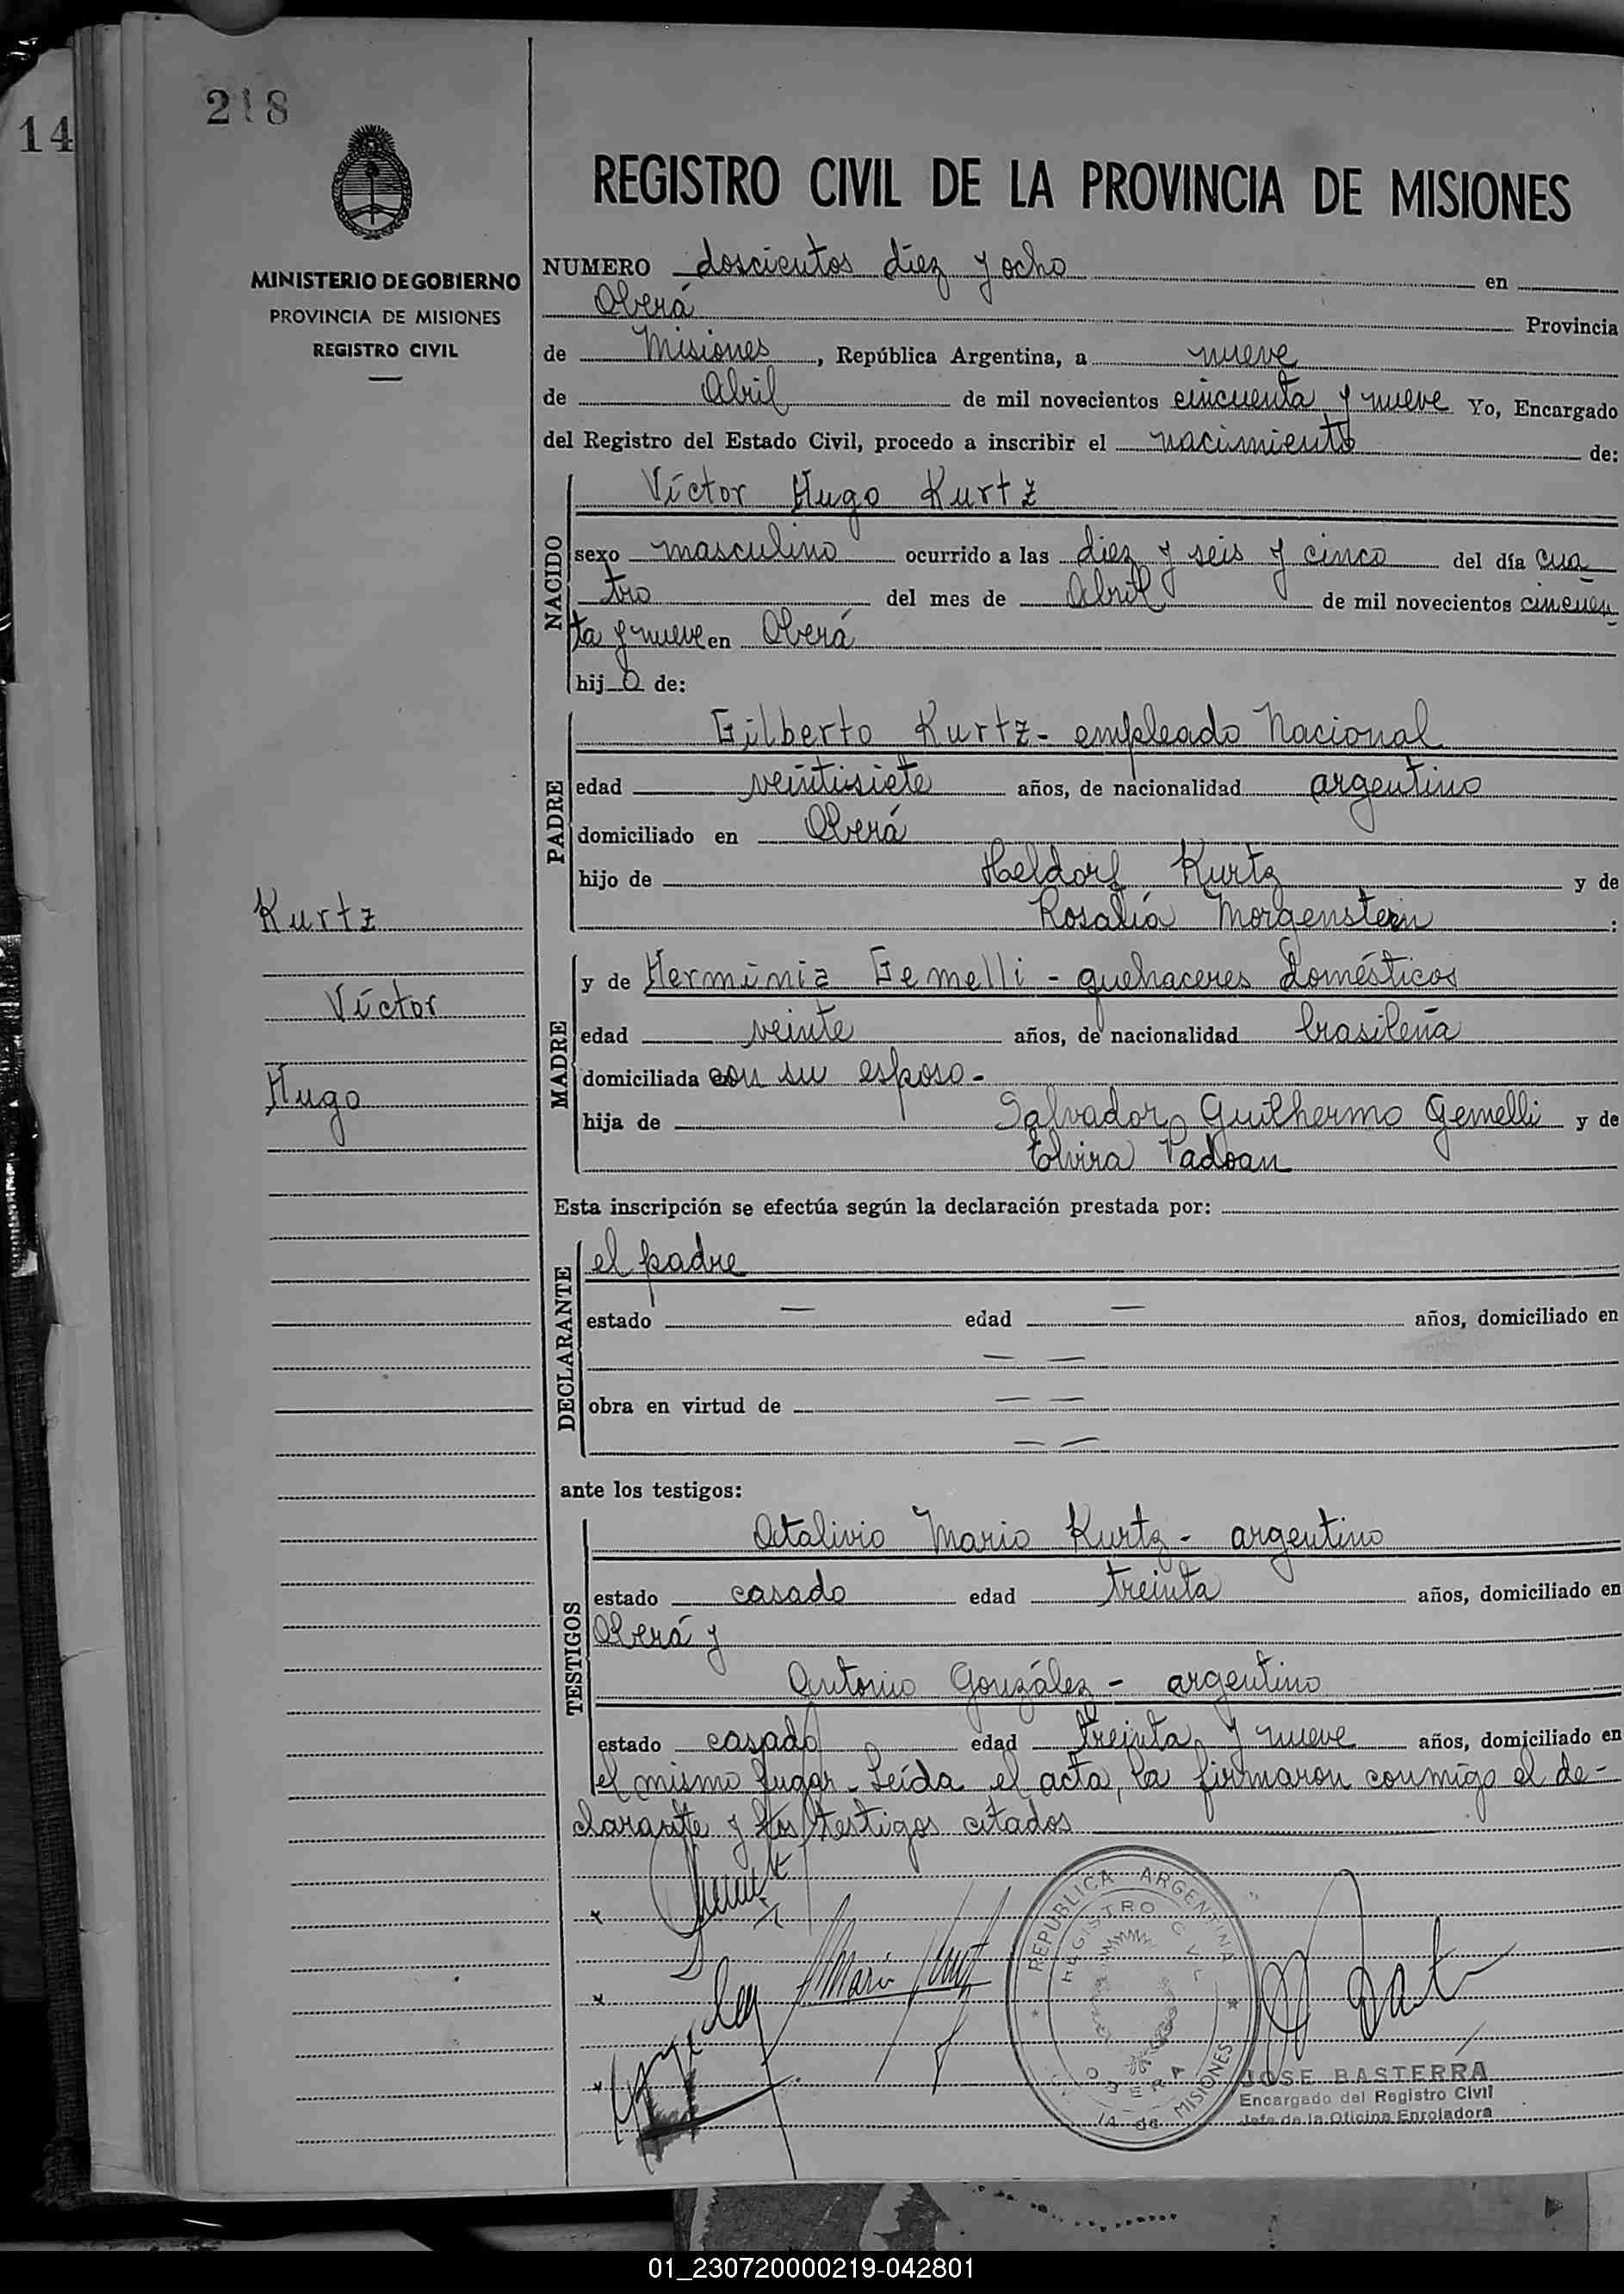 14
218
MINISTERIO DE GOBIERNO
PROVINCIA DE MISIONES
REGISTRO CIVIL
Kurtz
Víctor
Hugo
REGISTRO CIVIL DE LA PROVINCIA DE MISIONES
NUMERO doscientos diez y ocho en
Oberá Provincia
de Misiones, República Argentina, a nueve
de Abril de mil novecientos cincuenta y nueve Yo, Encargado
del Registro del Estado Civil, procedo a inscribir el nacimiento de:
NACIDO
Víctor Hugo Kurtz
sexo masculino ocurrido a las diez y seis y cinco del día cua
tro del mes de Abril de mil novecientos cincuen
ta y nueve en Oberá
hijo de:
PADRE
Gilberto Kurtz - empleado Nacional
edad veintisiete años, de nacionalidad argentino
domiciliado en Oberá
hijo de Heldorf Kurtz y de
Rosalía Morgenstern :
MADRE
y de Herminia Gemelli - quehaceres domésticos
edad veinte años, de nacionalidad brasileña
domiciliada con su esposo -
hija de Salvador Guilhermo Gemelli y de
Elvira Padoan
Esta inscripción se efectúa según la declaración prestada por:
DECLARANTE
el padre
estado — edad — años, domiciliado en
— —
obra en virtud de — —
— —
ante los testigos:
TESTIGOS
Octalivio Mario Kurtz - argentino
estado casado edad treinta años, domiciliado en
Oberá y
Antonio González - argentino
estado casado edad treinta y nueve años, domiciliado en
el mismo lugar - Leída el acta, la firmaron conmigo el de-
clarante y los testigos citados
REPUBLICA ARGENTINA
REGISTRO CIVIL
OBERA
MISIONES
JOSE BASTERRA
Encargado del Registro Civil
Jefe de la Oficina Enroladora
01_230720000219-042801